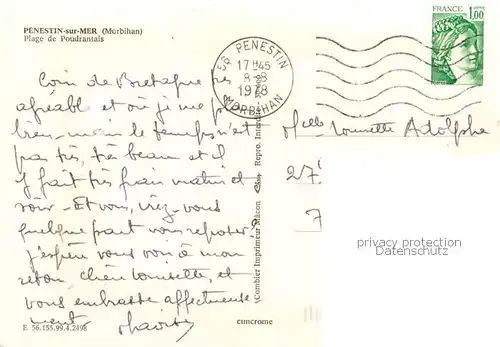 PÉNESTIN-sur-MER (Morbihan)
Plage de Poudrantais
FRANCE
1,00
56 PENESTIN
17 H45
8-8
1978
MORBIHAN
Coin de Bretagne très
agréable et où je me
bien - mais le temps n'est
pas très, très beau et il
y fait très frais matin et
soir - Et vous, irez-vous
quelque part vous reposer ?
J'espère vous voir à mon
retour, chère Louisette, et
vous embrasse affectueuse
ment
Melle Louisette Adolphe
27
7
(Combier Imprimeur Mâcon
Repro. Interdite
privacy protection
Datenschutz
E 56.155.99.4.2498
cimcrome